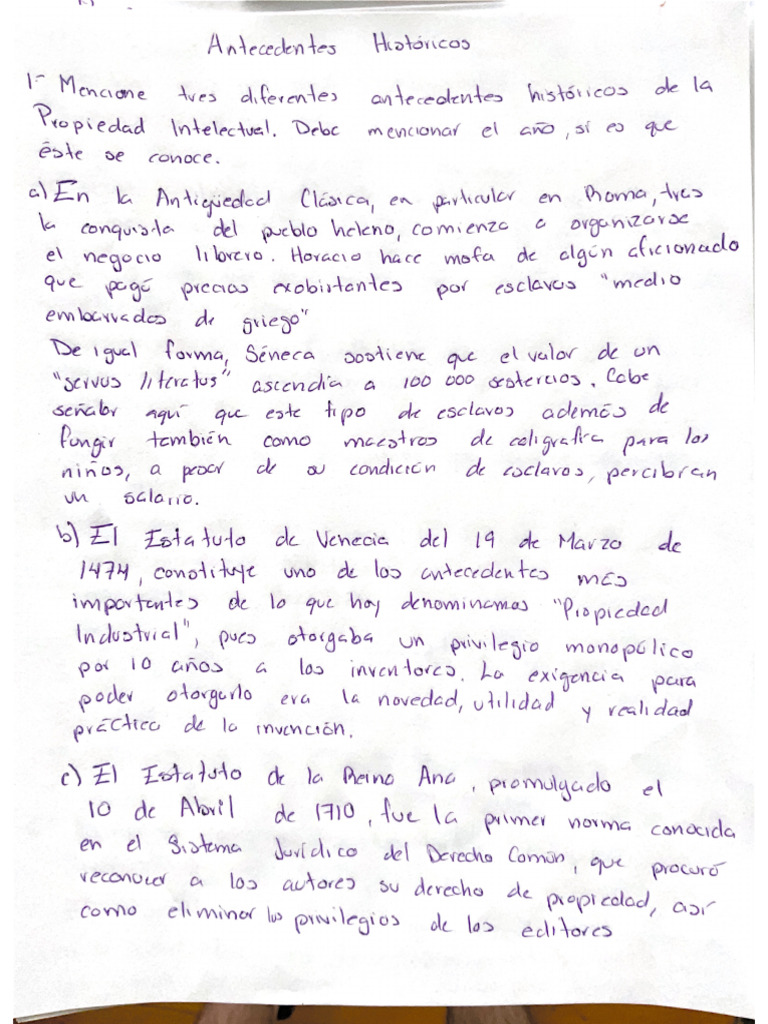 Antecedentes Históricos
1- Mencione tres diferentes antecedentes históricos de la
Propiedad Intelectual. Debe mencionar el año, si es que
éste se conoce.
a) En la Antigüedad Clásica, en particular en Roma, tras
la conquista del pueblo heleno, comienza a organizarse
el negocio librero. Horacio hace mofa de algún aficionado
que pagó precios exobistantes por esclavos "medio
embarrados de griego"
De igual forma, Séneca sostiene que el valor de un
"servus literatus" ascendía a 100 000 sestercios. Cabe
señalar aquí que este tipo de esclavos además de
fungir también como maestros de caligrafía para los
niños, a pesar de su condición de esclavos, percibían
un salario.
b) El Estatuto de Venecia del 19 de Marzo de
1474, constituye uno de los antecedentes más
importantes de lo que hoy denominamos "Propiedad
Industrial", pues otorgaba un privilegio monopólico
por 10 años a los inventores. La exigencia para
poder otorgarlo era la novedad, utilidad y realidad
práctica de la invención.
c) El Estatuto de la Reina Ana, promulgado el
10 de Abril de 1710, fue la primer norma conocida
en el Sistema Jurídico del Derecho Común, que procuró
reconocer a los autores su derecho de propiedad, así
como eliminar los privilegios de los editores